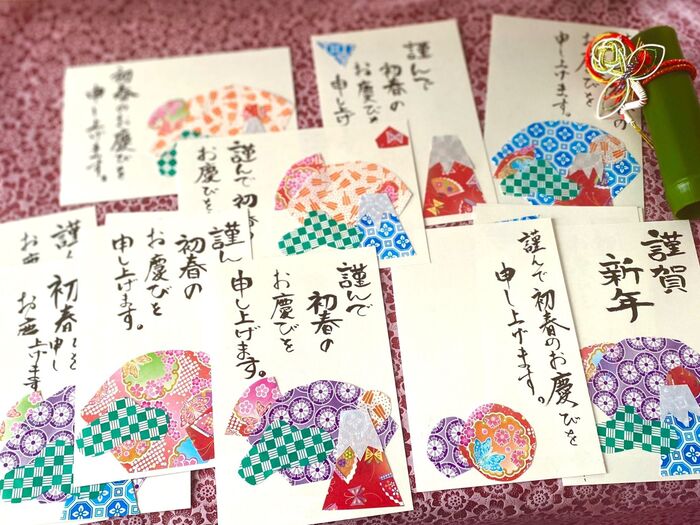 初春のお慶びを
申し上げます。
謹んで
初春の
お慶びを
申し上げ
申し上げます。
謹んで初春の
お慶びを
謹
お
初春
お慶
上げます
謹ん
初春の
お慶びを
申し上げます。
謹んで
初春の
お慶びを
申し上げます。
謹んで初春のお慶びを
申し上げます。
謹賀
新年